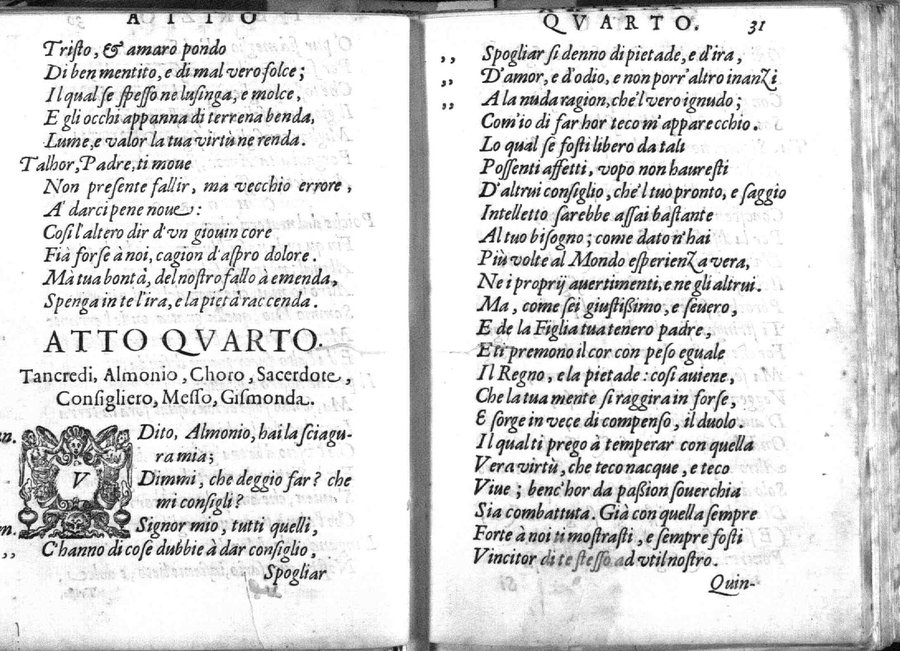 ATTO
Tristo, & amaro pondo
Di ben mentito, e di mal vero folce;
Il qual se spesso ne lusinga, e molce,
E gli occhi appanna di terrena benda,
Lume, e valor la tua virtù ne renda.
Talhor, Padre, ti moue
Non presente fallir, ma vecchio errore,
A' darci pene noue:
Così l'altero dir d'vn giouin core
Fià forse à noi, cagion d'aspro dolore.
Mà tua bontà, del nostro fallo à emenda,
Spenga in te l'ira, e la pietà raccenda.
ATTO QVARTO.
Tancredi, Almonio, Choro, Sacerdote,
Consigliero, Messo, Gismonda.
an. VDito, Almonio, hai la sciagu-
ra mia;
Dimmi, che deggio far? che
mi consigli?
m. Signor mio, tutti quelli,
,, C'hanno di cose dubbie à dar consiglio,
Spogliar
QVARTO. 31
,, Spogliar si denno di pietade, e d'ira,
,, D'amor, e d'odio, e non porr'altro inanzi
,, A la nuda ragion, che'l vero ignudo;
Com'io di far hor teco m'apparecchio.
Lo qual se fosti libero da tali
Possenti affetti, vopo non hauresti
D'altrui consiglio, che'l tuo pronto, e saggio
Intelletto sarebbe assai bastante
Al tuo bisogno; come dato n'hai
Più volte al Mondo esperienza vera,
Ne i proprij auertimenti, e ne gli altrui.
Ma, come sei giustissimo, e seuero,
E de la Figlia tua tenero padre,
E ti premono il cor con peso eguale
Il Regno, e la pietade: così auiene,
Che la tua mente si raggira in forse,
E sorge in vece di compenso, il duolo.
Il qual ti prego à temperar con quella
Vera virtù, che teco nacque, e teco
Viue; benc'hor da passion souerchia
Sia combattuta. Già con quella sempre
Forte à noi ti mostrasti, e sempre fosti
Vincitor di te stesso ad vtil nostro.
Quin-